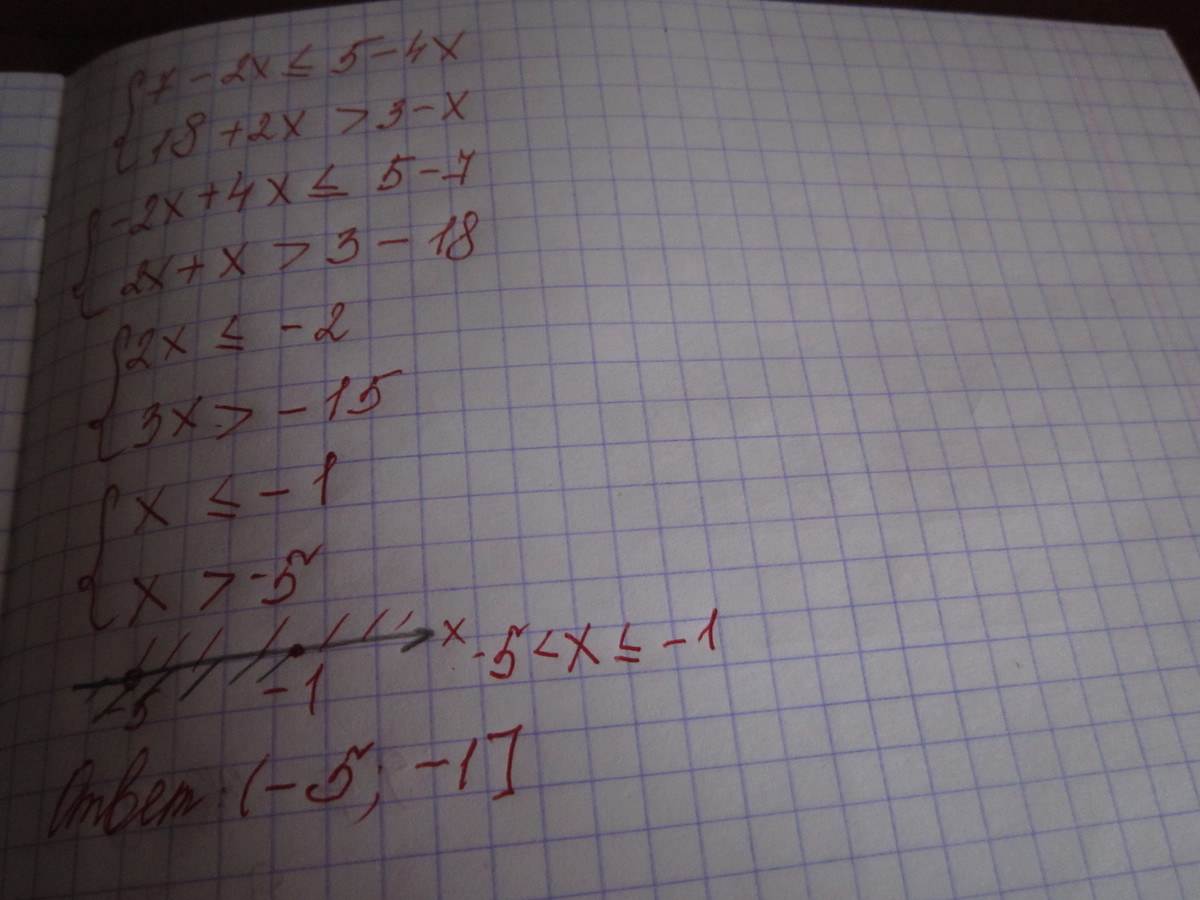 7 - 2x ≤ 5 - 4x
18 + 2x > 3 - x
-2x + 4x ≤ 5 - 7
2x + x > 3 - 18
2x ≤ -2
3x > -15
x ≤ -1
x > -5
x -5 < x ≤ -1
-5 -1
Ответ: (-5; -1]